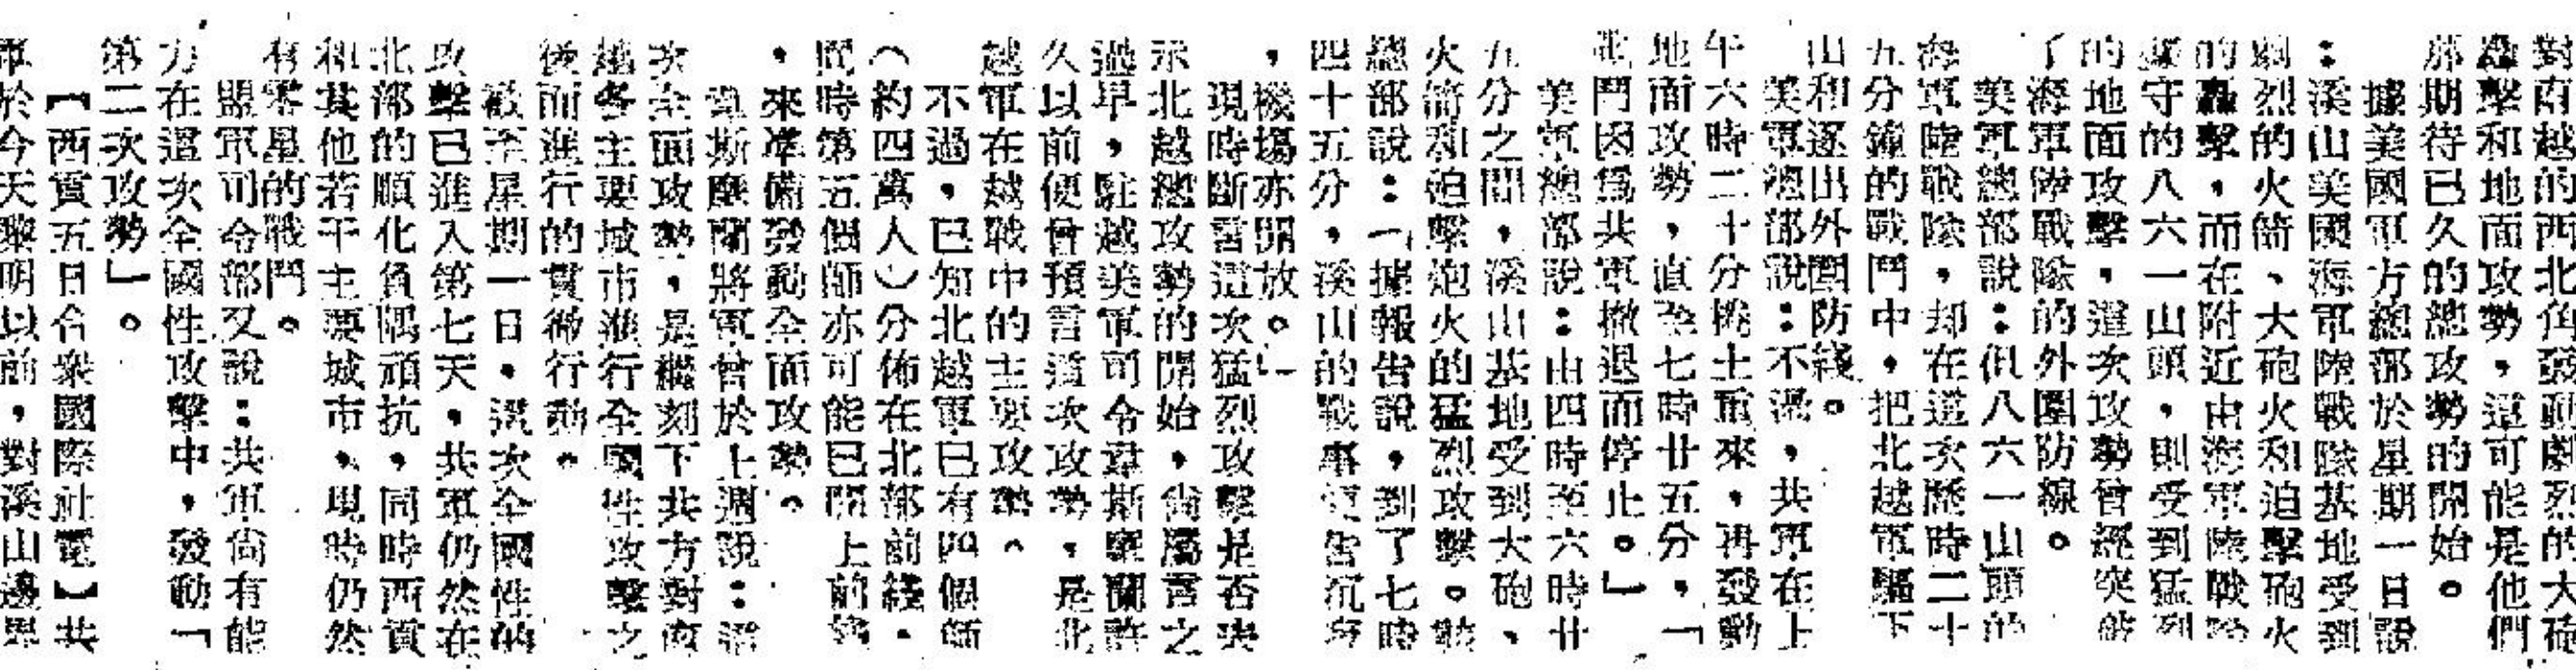 對南越的西北角發動劇烈的大砲
轟擊和地面攻勢，這可能是他們
那期待已久的總攻勢的開始。
據美國軍方總部於星期一日說
：溪山美國海軍陸戰隊基地受到
劇烈的火箭、大砲火和迫擊砲火
的轟擊，而在附近由海軍陸戰隊
據守的八六一山頭，則受到猛烈
的地面攻擊，這次攻勢曾經突破
了海軍陸戰隊的外圍防線。
美軍總部說：但八六一山頭的
海軍陸戰隊，却在這次歷時二十
五分鐘的戰鬥中，把北越軍驅下
山和逐出外圍防綫。
美軍總部說：不過，共軍在上
午六時二十分捲土重來，再發動
地面攻勢，直至七時廿五分，「
戰鬥因爲共軍撤退而停止。」
美軍總部說：由四時至六時廿
五分之間，溪山基地受到大砲、
火箭和迫擊炮火的猛烈攻擊。
總部說：「據報告說，到了七時
四十五分，溪山的戰事更告沉寂
，機場亦開放。」
現時斷言這次猛烈攻擊是否表
示北越總攻勢的開始，尙屬言之
過早，駐越美軍司令韋斯摩蘭許
久以前便曾預言這次攻勢，是北
越軍在越戰中的主要攻勢。
不過，已知北越軍已有四個師
（約四萬人）分佈在北部前綫，
同時第五個師亦可能已開上前綫
，來準備發動全面攻勢。
韋斯摩蘭將軍曾於上週說：這
次全面攻勢，是繼刻下共方對南
越各主要城市進行全國性攻擊之
後而進行的貫徹行動。
截至星期一日，這次全國性的
攻擊已進入第七天，共軍仍然在
北部的順化負隅頑抗，同時西貢
和其他若干主要城市，現時仍然
有零星的戰鬥。
盟軍司令部又說：共軍尙有能
力在這次全國性攻擊中，發動「
第二次攻勢」。
【西貢五日合衆國際社電】共
軍於今天黎明以前，對溪山邊界